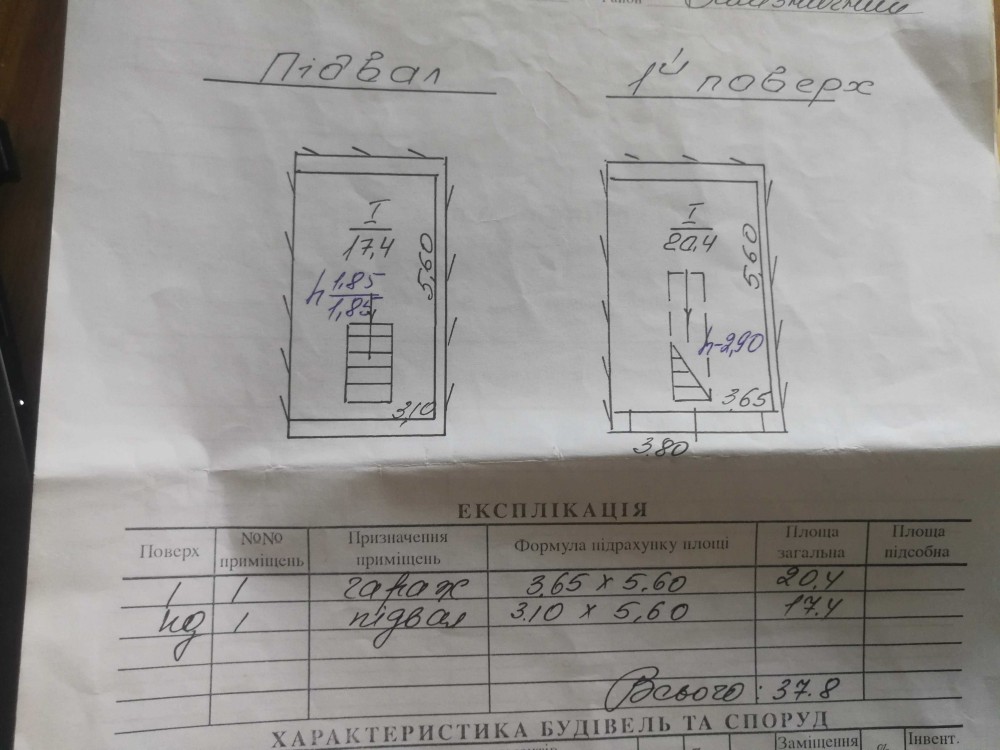 Підвал
1й поверх
I
17,4
5,60
h 1,85
1,85
3,10
I
20,4
5,60
h-2,90
3,65
3.80
ЕКСПЛІКАЦІЯ
Поверх №№ приміщень Призначення приміщень Формула підрахунку площі Площа загальна Площа підсобна
1 1 гараж 3,65 x 5.60 20.4
пд 1 підвал 3.10 x 5,60 17.4
Всього: 37.8
ХАРАКТЕРИСТИКА БУДІВЕЛЬ ТА СПОРУД
Заміщення % Інвент.